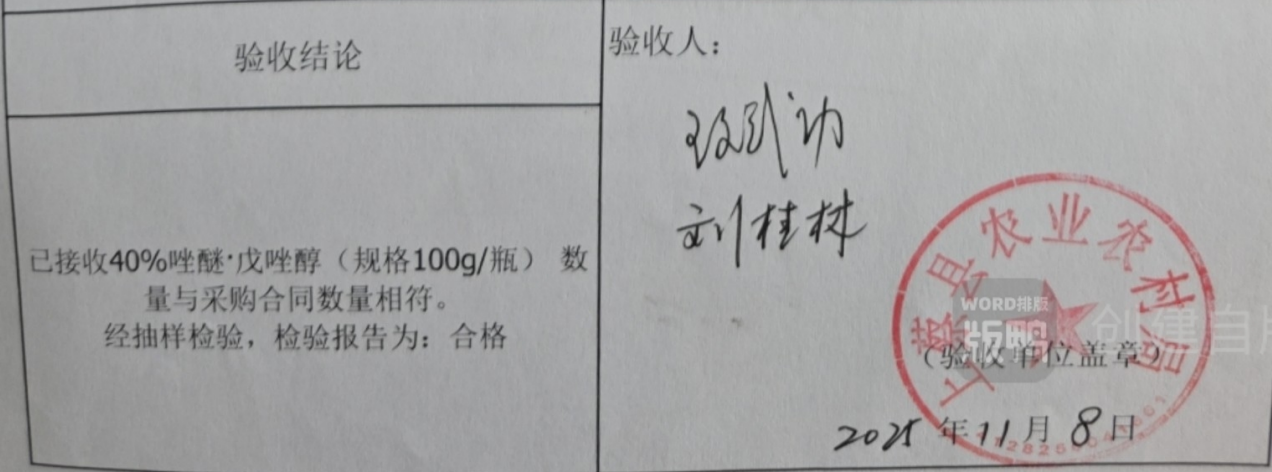 验收结论
已接收40%唑醚·戊唑醇（规格100g/瓶） 数
量与采购合同数量相符。
经抽样检验，检验报告为：合格
验收人：
刘桂林
上蔡县农业农村局
WORD排版
创建自版
（验收单位盖章）
2025 年 11 月 8 日